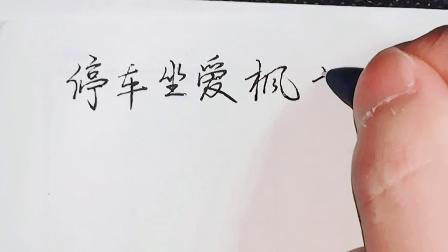 停车坐爱枫